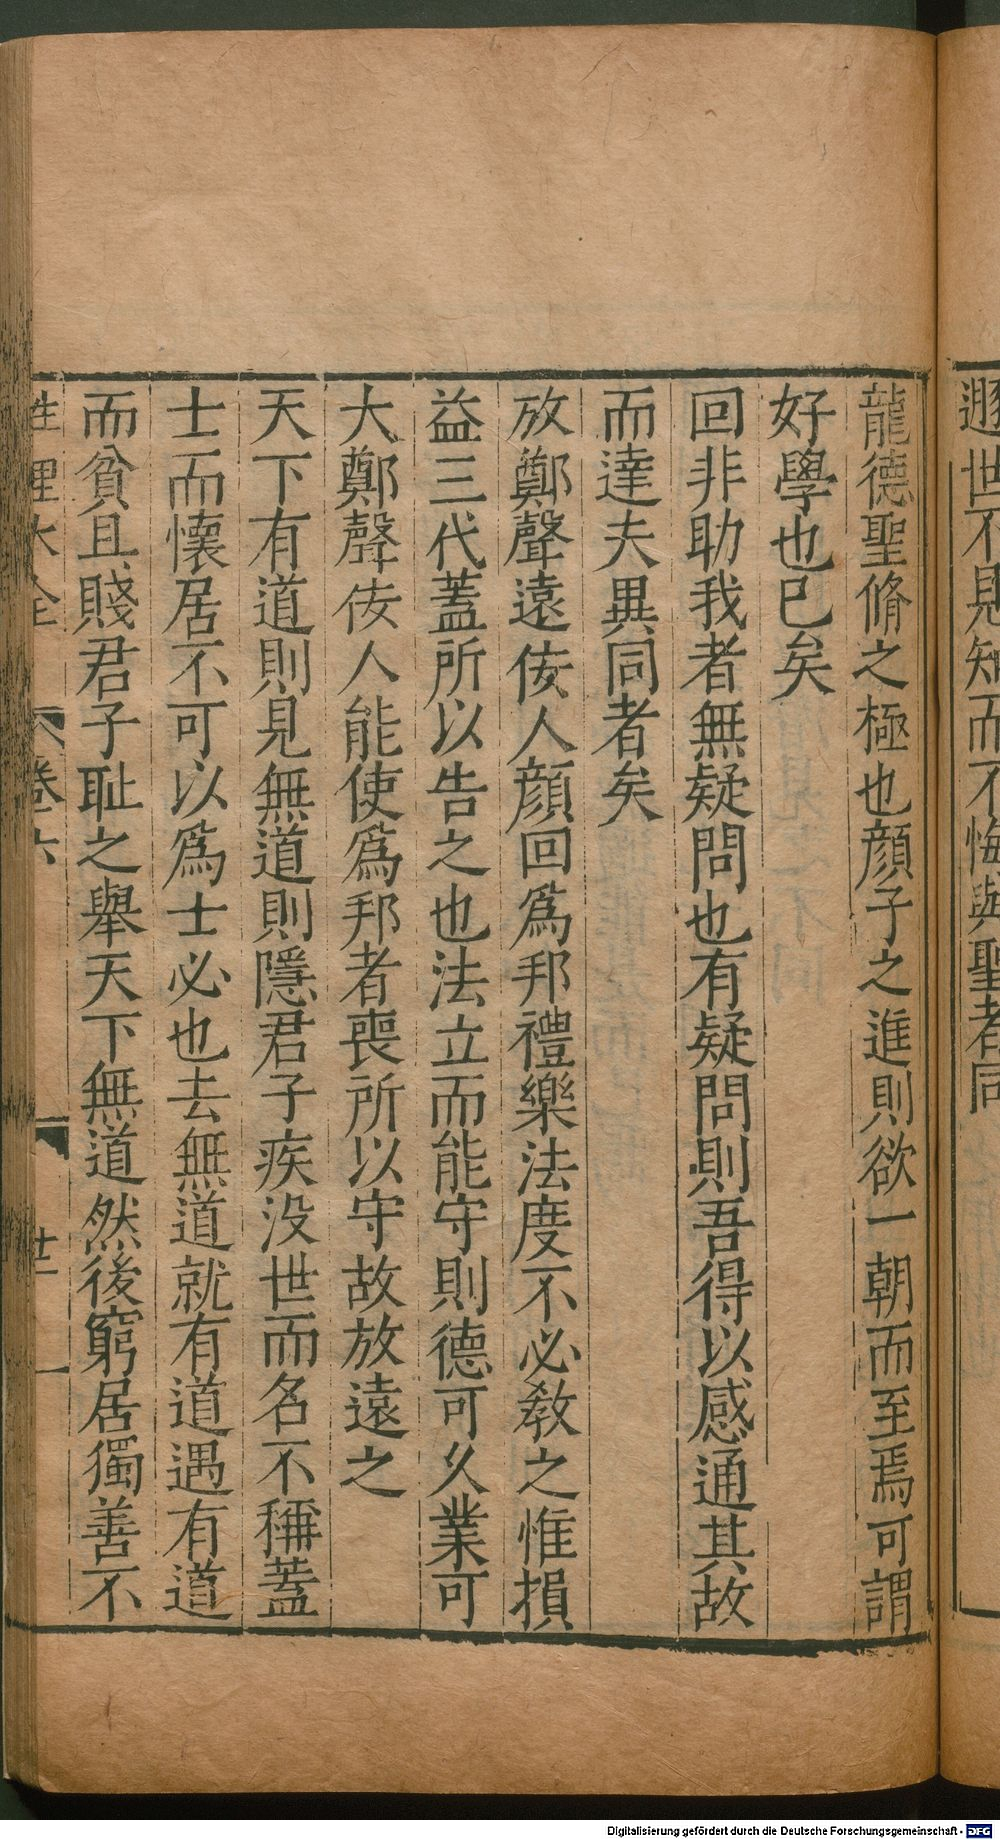 遯世不見知而不悔與聖者同
龍德聖脩之極也顔子之進則欲一朝而至焉可謂
好學也已矣
回非助我者無疑問也有疑問則吾得以感通其故
而達夫異同者矣
放鄭聲遠佞人顔回爲邦禮樂法度不必敎之惟損
益三代蓋所以告之也法立而能守則德可久業可
大鄭聲佞人能使爲邦者喪所以守故放遠之
天下有道則見無道則隱君子疾没世而名不稱蓋
士而懷居不可以爲士必也去無道就有道遇有道
而貧且賤君子耻之舉天下無道然後窮居獨善不
性理大全 卷六 廿一
Digitalisierung gefördert durch die Deutsche Forschungsgemeinschaft - DFG